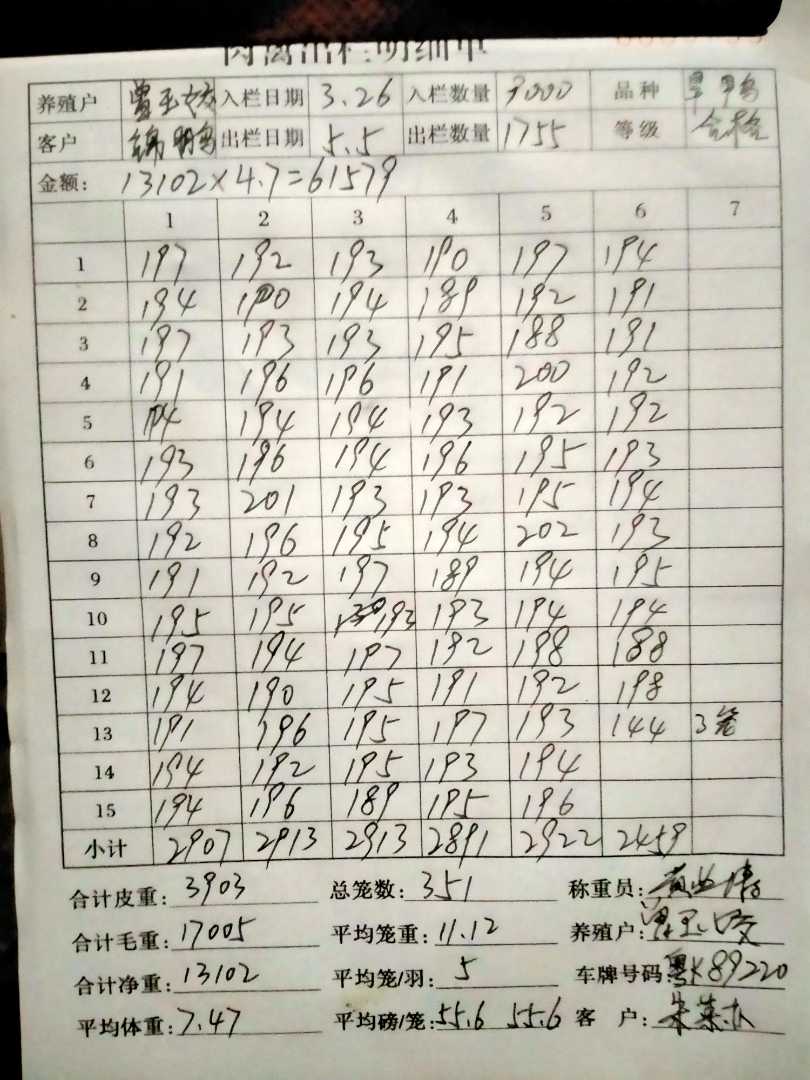 肉禽出栏明细单
养殖户 入栏日期 3.26 入栏数量 9000 品种
客户 出栏日期 5.5 出栏数量 1755 等级 合格
金额: 13102×4.7=61579
1 2 3 4 5 6 7
1 197 192 193 190 197 194
2 194 190 194 189 192 191
3 197 193 193 195 188 191
4 191 196 196 191 200 192
5 194 194 194 193 192 192
6 193 196 194 196 195 193
7 193 201 193 193 195 194
8 192 196 195 194 202 193
9 191 192 197 189 194 195
10 195 195 193 193 194 194
11 197 194 197 192 198 188
12 194 190 195 191 192 198
13 191 196 195 197 193 144 3笼
14 194 192 195 193 194
15 194 196 189 195 196
小计 2907 2913 2913 2891 2922 2459
合计皮重: 3903 总笼数: 351 称重员:
合计毛重: 17005 平均笼重: 11.12 养殖户:
合计净重: 13102 平均笼/羽: 5 车牌号码: 粤K89220
平均体重: 7.47 平均磅/笼: 55.6 55.6 客 户: